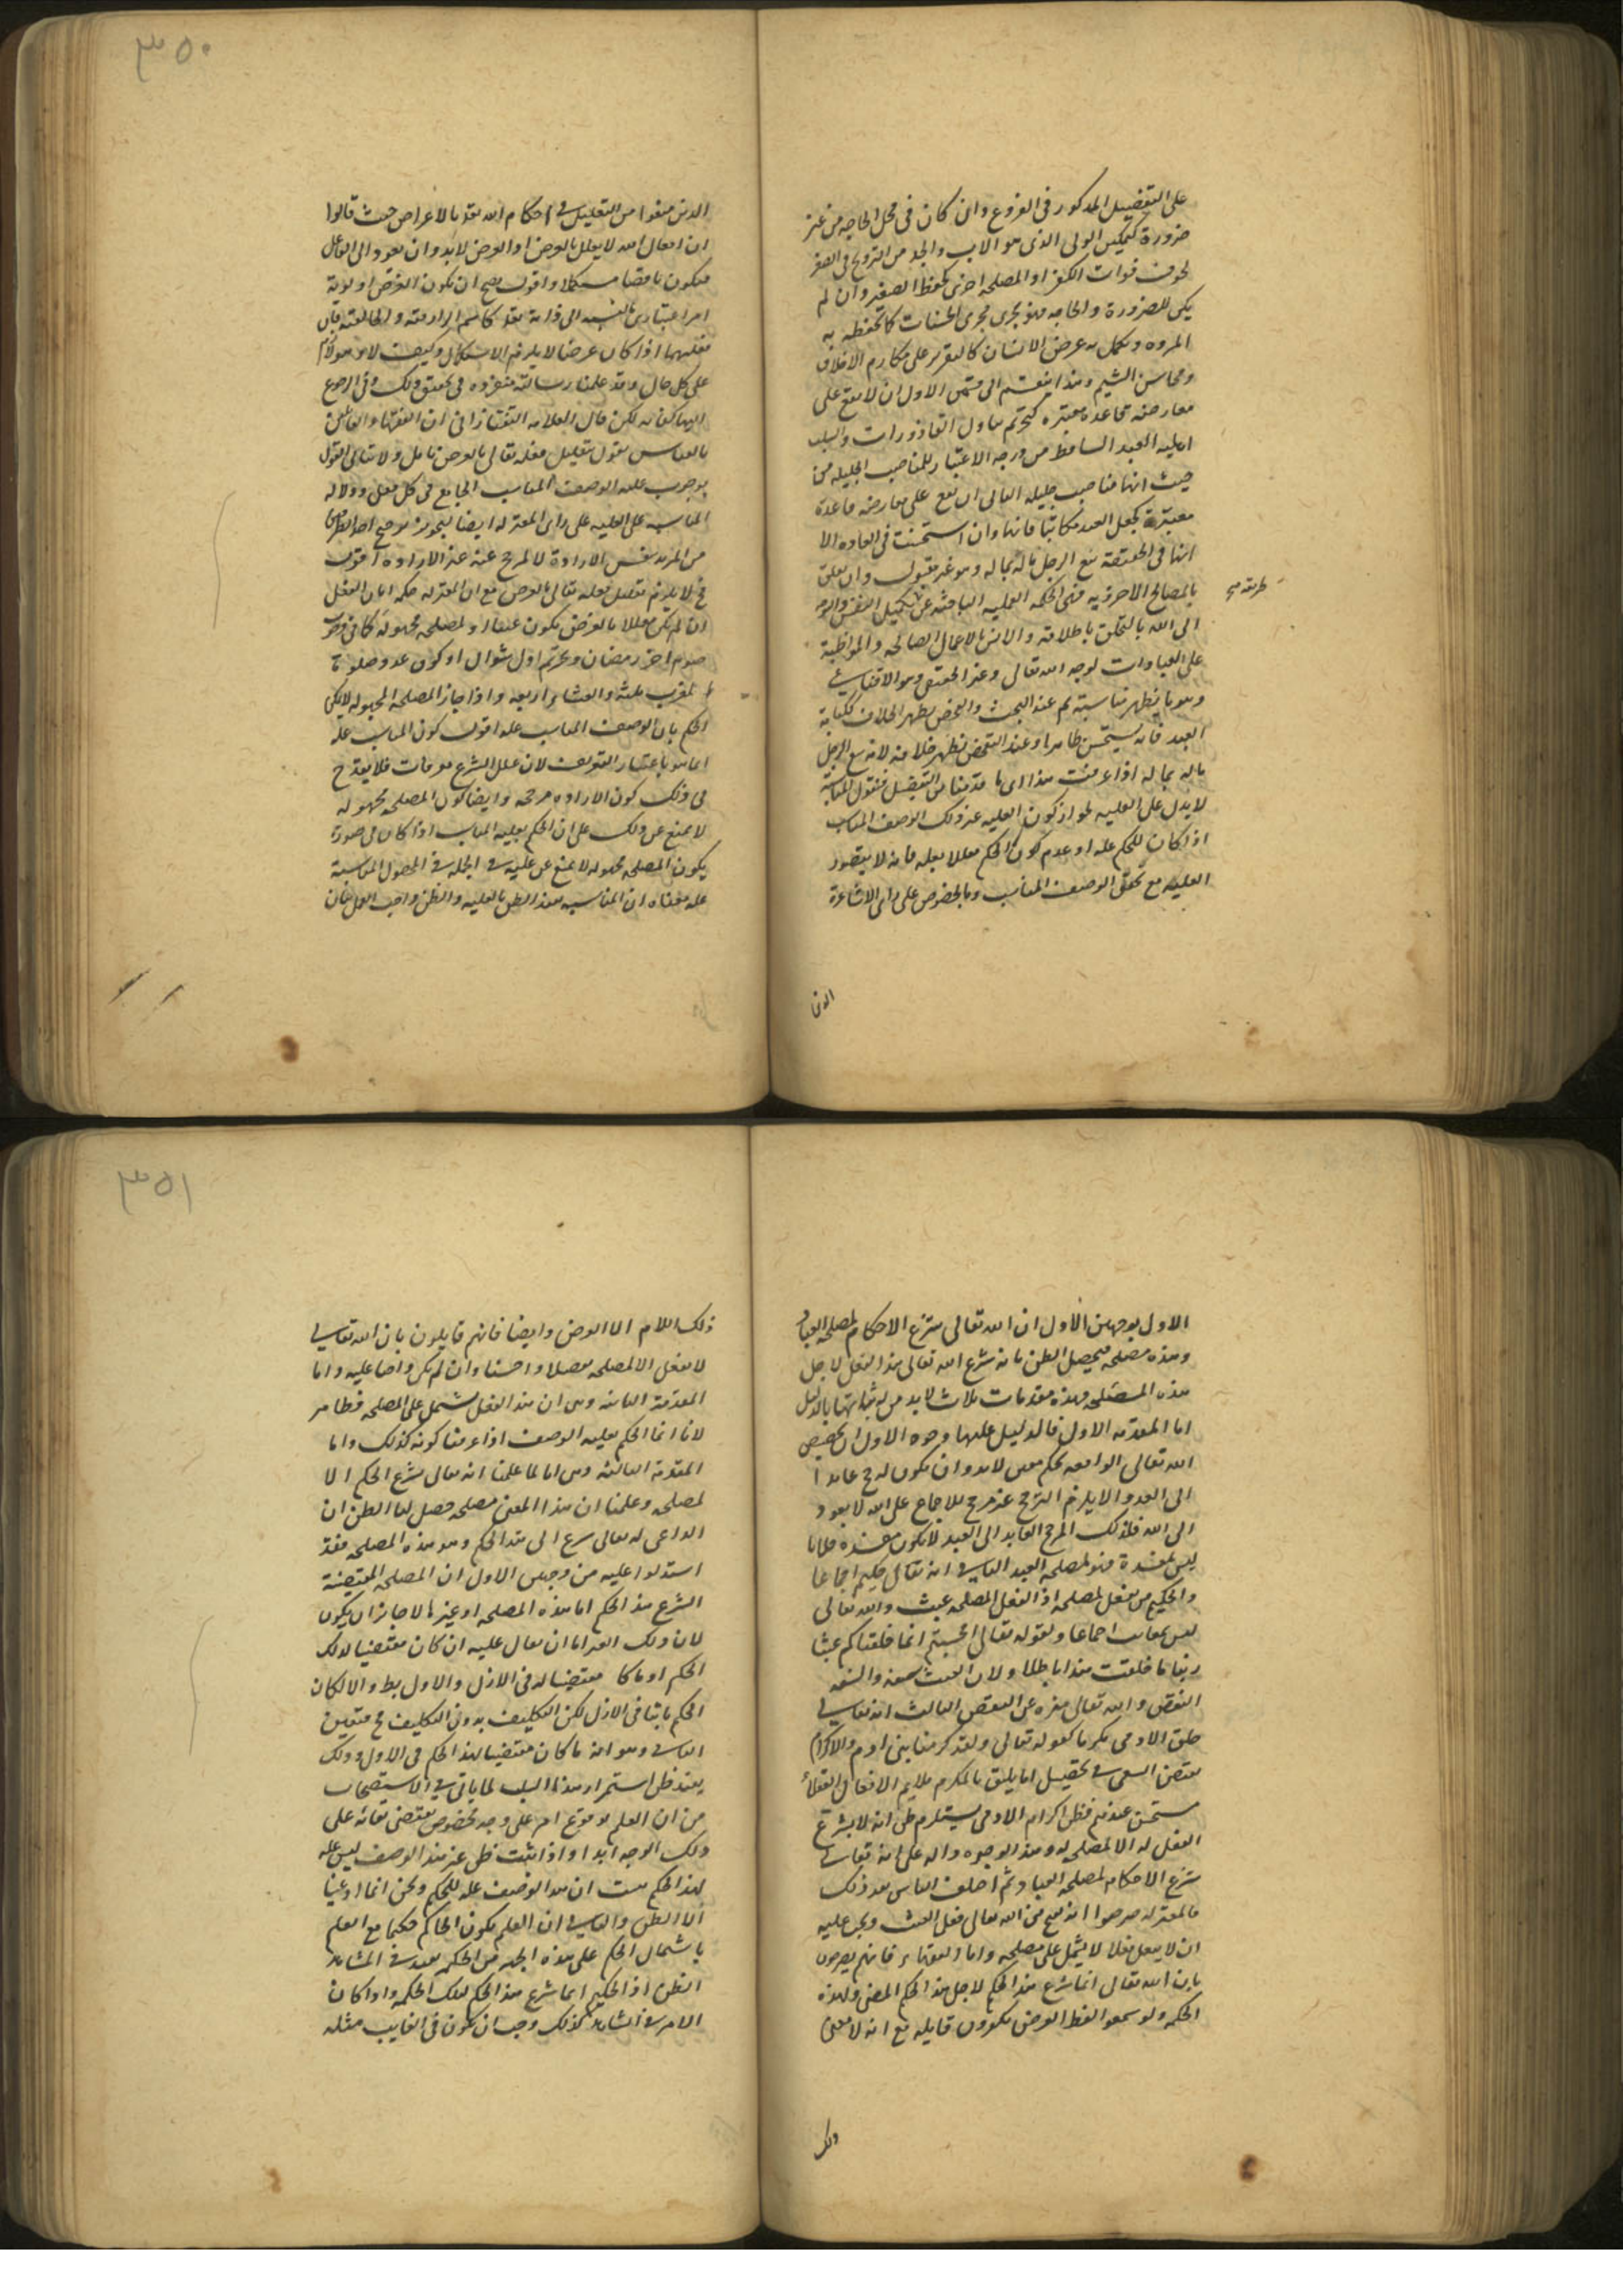 ٣٥٠
على التفضيل المذكور فى الفروع وان كان فى محل الحاجه من غير
ضرورة كتمكين الولى الذى هو الاب والجد من التزويج فى الصغر
لخوف فوات الكفؤ او المصلحه اخرى كحفظ الصغير وان لم
يكن للضرورة والحاجه فهو يجرى مجرى الحسنات كالتحفظ به
المروه ويكمل به عرض الانسان كالتقرير على مكارم الاخلاق
ومحاسن الشيم وهذا ينقسم الى قسمين الاول ان لا يقع على
معارضه قاعده معتبره كتحريم تناول القاذورات وسلب
اهليه العبد الساقط من درجه الاعتبار للمناصب الجليله من
حيث انها مناصب جليله الثانى ان يقع على معارضه قاعدة
معتبرة كجعل العبد مكاتبا فانها وان استحسنت فى العاده الا
انها فى الحقيقة بيع الرجل ماله بماله وهو غير مقبول وان تعلق
بالمصالح الاخرويه فهى الحكمه العمليه الباحثه عن تكميل النفس والتوجه
طريقه صح
الى الله بالتخلق باخلاقه والانس بالاعمال الصالحه والمواظبة
على العبادات لوجه الله تعالى وغير الحقيقى وهو الاقناعى
وهو ما يظهر مناسبته ثم عند البحث والفحص يظهر الخلاف ككتابة
العبد فانه يستحسن ظاهرا وعند التفحص يظهر خلافه لانه بيع الرجل
ماله بماله اذا عرفت هذا اى ما قدمنا من التفصيل فنقول المناسبة
لا يدل على العليه لجواز كون العليه غير ذلك الوصف المناسب
اذا كان للحكم عله او عدم كون الحكم معللا بعله فانه لا يتصور
العليه مع تحقق الوصف المناسب وبالخصوص على راى الاشاعرة
الذين
الذين منعوا من التعليل فى احكام الله تعالى بالاغراض حيث قالوا
ان افعال الله لا يعلل بالغرض اذ الغرض لابد وان يعود الى الفاعل
فيكون ناقصا مستكملا واقول يصح ان يكون الغرض اولوية
امرا اعتباريا بالنسبه الى ذاته تعالى كاسم الرازقيه والخالقيه فان
تعلقهما اذا كان غرضا لا يلزم الاستكمال وكيف لا وهو لازم
على كل حال وقد علمنا رسالة منفرده فى تحقيق ذلك وفى الرجوع
اليها كفايه لكن قال العلامه التفتازانى ان الفقها والقائلين
بالقياس يقول بتعليل فعله تعالى بالغرض تامل ولا يتانى القول
بوجوب عليه الوصف المناسب الجامع فى كل فعل ودلاله
المناسبه على العليه على راى المعتزله ايضا لتجويز ترجيح احد الطرفين
من المريد بنفس الاراده لا لمرجح عنه غير الاراده اقول
فح لا يلزم تعليل فعله تعالى بالغرض مع ان المعتزله حكموا بان الفعل
ان لم يكن معللا بالغرض يكون عبثا او لمصلحه مجهوله كما فى وجوب
صوم اخر رمضان وتحريم اول شوال او كون عدد صلوة
المغرب ثلثه والعشاء اربعه واذا جاز المصلحه المجهوله لا يمكن
الحكم بان الوصف المناسب عله اقول كون المناسب عله
انما هو باعتبار التعريف لان علل الشرع معرفات فلا يقدح
فى ذلك كون الاراده مرجحه وايضا كون المصلحه مجهوله
لا يمنع عن ذلك على ان الحكم بعليه المناسب اذا كان فى صورة
يكون المصلحه مجهوله لا يمنع عن عليته فى الجمله فى الحصول المناسبة
عله معناه ان المناسبه يفيد الظن بالعليه والظن واجب العمل بيان
٣٥١
الاول بوجهين الاول ان الله تعالى شرع الاحكام لمصلحه العباد
وهذه مصلحه فيحصل الظن بانه شرع الله تعالى هذا الفعل لاجل
هذه المصلحه وهذه مقدمات ثلاث لابد من اثباتها بالدليل
اما المقدمه الاولى فالدليل عليها وجوه الاول ان تخصيص
الله تعالى الواقعه بحكم معين لابد وان يكون لمرجح عائدا
الى العبد والا يلزم الترجيح بغير مرجح للاجماع على انه لا يعود
الى الله فلذلك المرجح العايد الى العبد لا يكون مفسده فلما
ليس لمفسدة فهو لمصلحه العبد الثانى انه تعالى حكيم اجماعا
والحكيم من يفعل لمصلحه اذ الفعل لا لمصلحه عبث والله تعالى
ليس بعابث اجماعا ولقوله تعالى افحسبتم انما خلقناكم عبثا
ربنا ما خلقت هذا باطلا ولان العبث سفه والسفه
النقص والله تعالى منزه عن النقص الثالث انه تعالى
خلق الادمى مكرما كقوله تعالى ولقد كرمنا بنى ادم والاكرام
يقتضى السعى فى تحصيل ما يليق بالمكرم ملايم لافعال العقلاء
مستحسن عندهم فظن اكرام الادمى يستلزم ظن انه لا يشرع
الفعل له الا لمصلحه له وهذه الوجوه داله على انه تعالى
شرع الاحكام لمصلحه العباد ثم اختلف الناس بعد ذلك
فالمعتزله صرحوا انه يقبح من الله تعالى فعل العبث ويجب عليه
ان لا يفعل فعلا لا يشتمل على مصلحه واما الفقهاء فانهم يصرحون
بان الله تعالى انما شرع هذا الحكم لاجل هذا الحكم المعنى ولهذه
الحكمه ولو سمعوا لفظ الغرض يكفرون قايله مع انه لا معنى
ذلك
ذلك اللام الا الغرض وايضا فانهم قايلون بان الله تعالى
لا يفعل الا لمصلحه تفضلا واحسانا وان لم يكن واجبا عليه واما
المقدمة الثانيه وهى ان هذا الفعل يشتمل على المصلحه فظاهر
لانا انما الحكم بعليه الوصف اذا عرفنا كونه كذلك واما
المقدمة الثالثه وهى انا لما علمنا انه تعالى شرع الحكم الا
لمصلحه وعلمنا ان هذا المعنى مصلحه حصل لنا الظن ان
الداعى له تعالى شرع الى هذا الحكم وهو هذه المصلحه فقد
استدلوا عليه من وجهين الاول ان المصلحه المقتضية
الشرع هذا الحكم اما هذه المصلحه او غيرها لا جايز ان يكون
لان ذلك الغير اما ان يقال عليه ان كان مقتضيا لذلك
الحكم او ما كان مقتضيا له فى الازل والاول بط والا لكان
الحكم ثابتا فى الازل لكن التكليف بدون التكليف مح فتعين
الثانى وهو انه ما كان مقتضيا لهذا الحكم فى الازل وذلك
يفيد ظن استمرار هذا السلب لما ياتى فى الاستصحاب
من ان العلم بوقوع امر على وجه مخصوص يقتضى بقائه على
ذلك الوجه ابدا واذا ثبت ظن غير هذا الوصف ليس عله
لهذا الحكم ثبت ان هذا الوصف عله للحكم ونحن انما ادعينا
الا الظن والثانى ان العلم بكون الحاكم حكيما مع العلم
باشتمال الحكم على هذه الجهه من الحكمه يفيد فى الشاهد
الظن اذ الحكيم انما شرع هذا الحكم لتلك الحكمه واذا كان
الامر فى الشاهد كذلك وجب ان يكون فى الغايب مثله